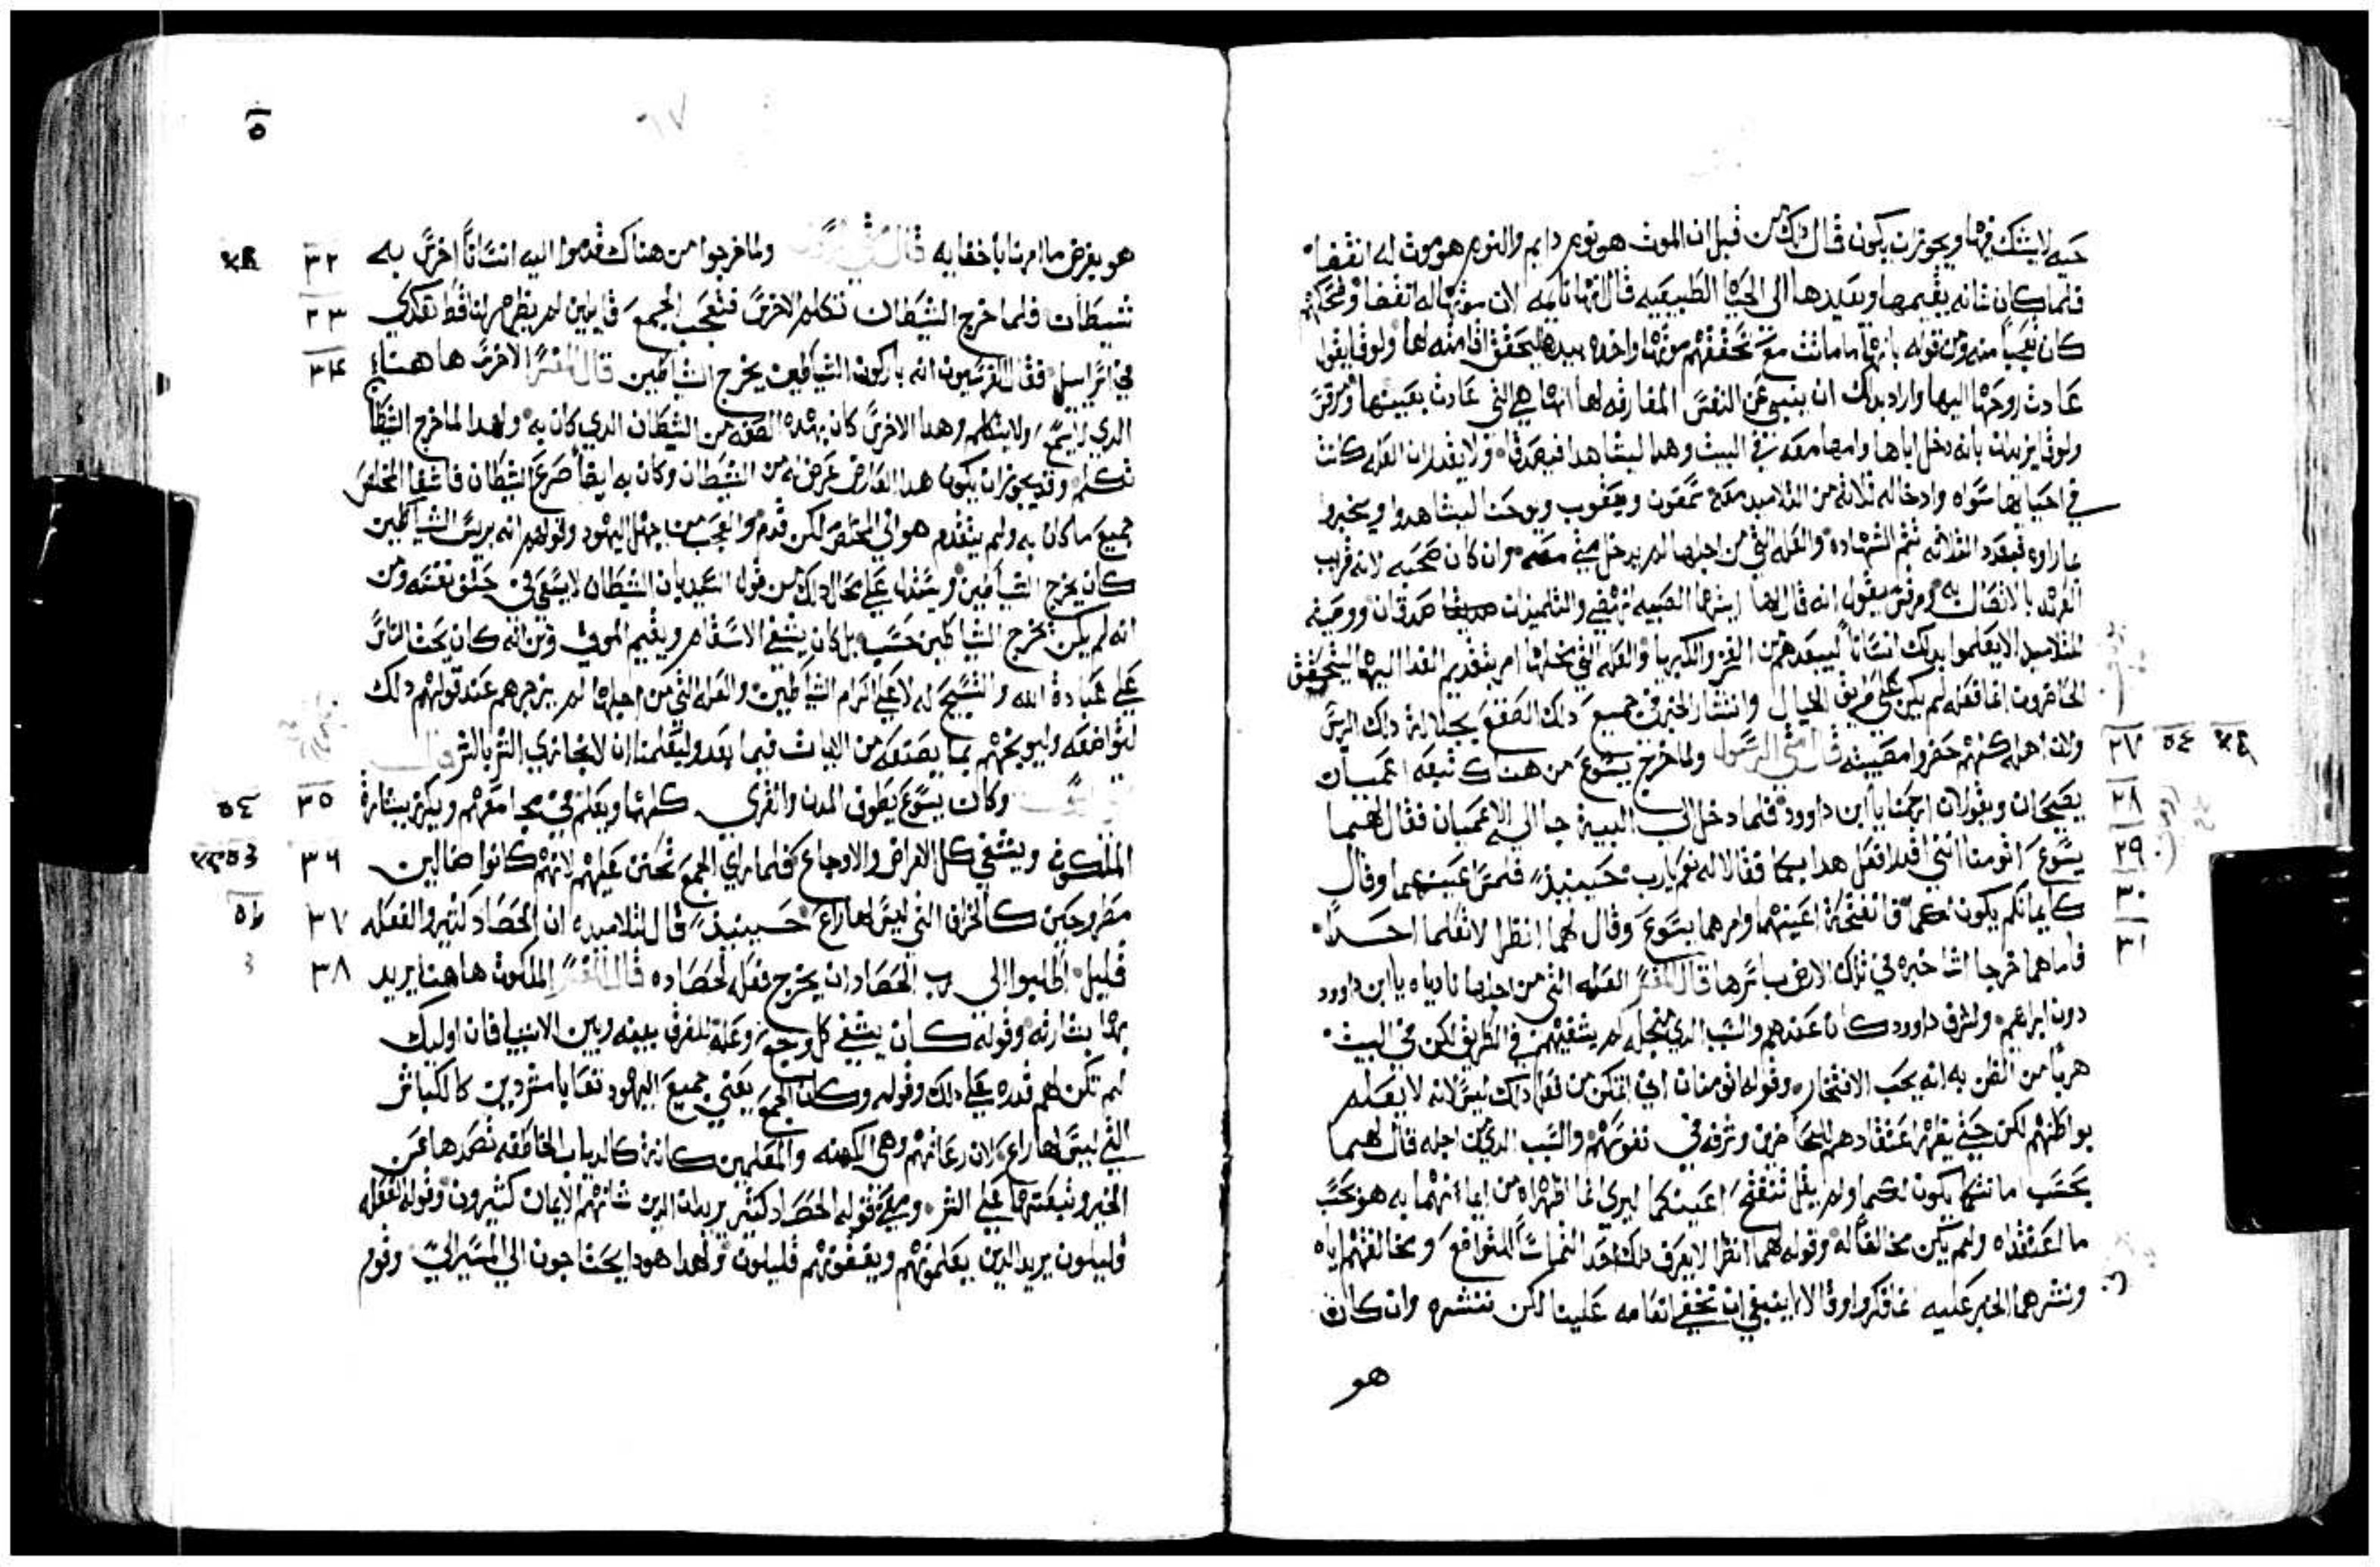 حيه لا يشك فيها ويجوز ان يكون قال ذلك من قبل ان الموت هو نوم دايم والنوم هو موت له انقضا
فلما كان شانه يقيمها ويعيدها الى الحياه الطبيعيه قال انها نايمه لان موتها له انقضا
كان تعجبا منه ومن قوله بانها ما ماتت مع تحققهم موتها واخده بيدها ليتحقق اقامته لها ولوقا يقول
عادت روحها اليها واراد بدلك ان ينبى عن النفس المفارقه لها انها هي التي عادت بعينها ومرقس
ولوقا يزيدان بانه دخل اباها وامها معه في البيت وهما ليشاهدا فيصدقا ولا يقدران العله كانت
في احيايها سواه وادخاله ثلاثه من التلاميد معه شمعون ويعقوب ويوحنا ليشاهدوا ويخبروا
بما راوه فبعدد الثلاثه تتم الشهاده والعله التي من اجلها لم يدخل متي معه وان كان صحبه لانه قريب
العهد بالاتصال به ومرقس يقول انه قال لها ايتها الصبيه انهضي والتلميدان صدقان ووصيته
للتلاميد الا يعلموا بدلك انسانا ليبعدهم من الفخر والكبريا والعله التي بخلها امر بتقديم الغدا اليها ليتحقق
الحاضرون ان ما فعله لم يكن على طريق الخيال وانتشار الخبر في جميع دلك الصقع بجلالة دلك الريس
ولان اهله كلهم حضروا مصيبته قال متي الرسول ولما خرج يسوع من هناك تبعه اعميان ٢٧ ٥٤
يصيحان ويقولان ارحمنا يا ابن داوود فلما دخل الى البيت جا اليه الاعميان فقال لهما ٢٨
يسوع اتومنا انني اقدر افعل هدا بكما فقالا له نعم يارب حينيد لمس اعينهما وقال ٢٩
كايمانكم يكون لكما فانفتحت اعينهما وامرهما يسوع وقال لهما انظرا لا تعلما احدا ٣٠
فاما هما خرجا اشاعا خبره في تلك الارض باسرها قال المفسر العله التي من اجلها نادياه يا ابن داوود ٣١
دون ابراهيم ولشرف داوود كان عندهم والسبب الدي من اجله لم يشفيهم في الطريق لكن في البيت
هربا من الظن به انه يحب الافتخار وقوله اتومنان اي اتمكن من فعل دلك ليس لانه لا يعلم
بواطنهم لكن حتي يظهر اعتقادهم للحاضرين وشرفه في نفوسهم والسبب الدي من اجله قال لهما
بحسب امانتكما يكون لكما ولم يقل تنفتح اعينكما ليري انما اظهراه من ايمانهما به هو بحسب
ما اعتقداه ولم يكن مخالفا له وقوله لهما انظرا لا يعرف دلك احد التماسا للتواضع ومخالفتهم اياه
ونشرهما الخبر عليه انما فكروا وقالا ما ينبغي ان نخفي انعامه علينا لكن ننشره وان كان
هو
٥
٦٧
هو يفرض ما امرنا باخفايه قال متي الرسول ولما خرجوا من هناك قدموا اليه انسانا اخرس به ٣٢
شيطان فلما خرج الشيطان تكلم الاخرس فتعجب الجمع قايلين لم يظهر لنا قط هكدي ٣٣
في اسراييل فقال الفريسيون انه باركون الشياطين يخرج الشياطين قال المفسر الاخرس ها هنا ٣٤
الدي لا يسمع ولا يتكلم وهدا الاخرس كان بهده الصفه من الشيطان الدي كان به ولهدا لما خرج الشيطان
تكلم وقد يجوز ان يكون هدا العارض عرض له من الشيطان وكان به ايضا صرع الشيطان فاشفا المخلص
جميع ما كان به ولم يتقدم هو الي المخلص لكن قدم والعجب من جهل اليهود وقولهم انه بريس الشياطين
كان يخرج الشياطين ويستدل على محال دلك من قول السيد بان الشيطان لا يسعي في حتف نفسه ومن
انه لم يكن يخرج الشياطين حسب بل كان يشفي الاسقام ويقيم الموتي ومن انه كان يحث الناس
علي عبادة الله والتسبيح له لا علي اكرام الشياطين والعله التي من اجلها لم يزجرهم عند قولهم دلك
لتواضعه وليوبخهم بما يصنعه من الايات فيما بعد وليعلمنا ان لا نجازي الشر بالشر قال
متي وكان يسوع يطوف المدن والقري كلها ويعلم في مجامعهم ويكرز ببشارة ٣٥ ٥٤
الملكوت ويشفي كل الامراض والاوجاع فلما راي الجمع تحنن عليهم لانهم كانوا ضالين ٣٦
مطروحين كالخراف التي ليس لها راع حينيد قال لتلاميده ان الحصاد كثير والفعله ٣٧
قليل اطلبوا الى رب الحصاد ان يخرج فعله لحصاده قال المفسر الملكوت ها هنا يريد ٣٨
بها بشارته وقوله كان يشفي كل وجع وعلة للفرق بينه وبين الانبيا فان اوليك
لم تكن لهم قدره علي دلك وقوله وكان الجمع يعني جميع اليهود تعابا مشردين كالكباش
التي ليس لها راع لان رعاتهم وهي الكهنه والمعلمين كانت كالدياب الخاطفه تصدها عن
الخير وتبعثها علي الشر ومعني قوله الحصاد كثير يريد ان الدين شانهم الايمان كثيرون وقوله الفعله
قليلون يريد الدين يعلمونهم ويثقفونهم قليلون ولهدا هودا يحتاجون الي المسير اليي وقوم